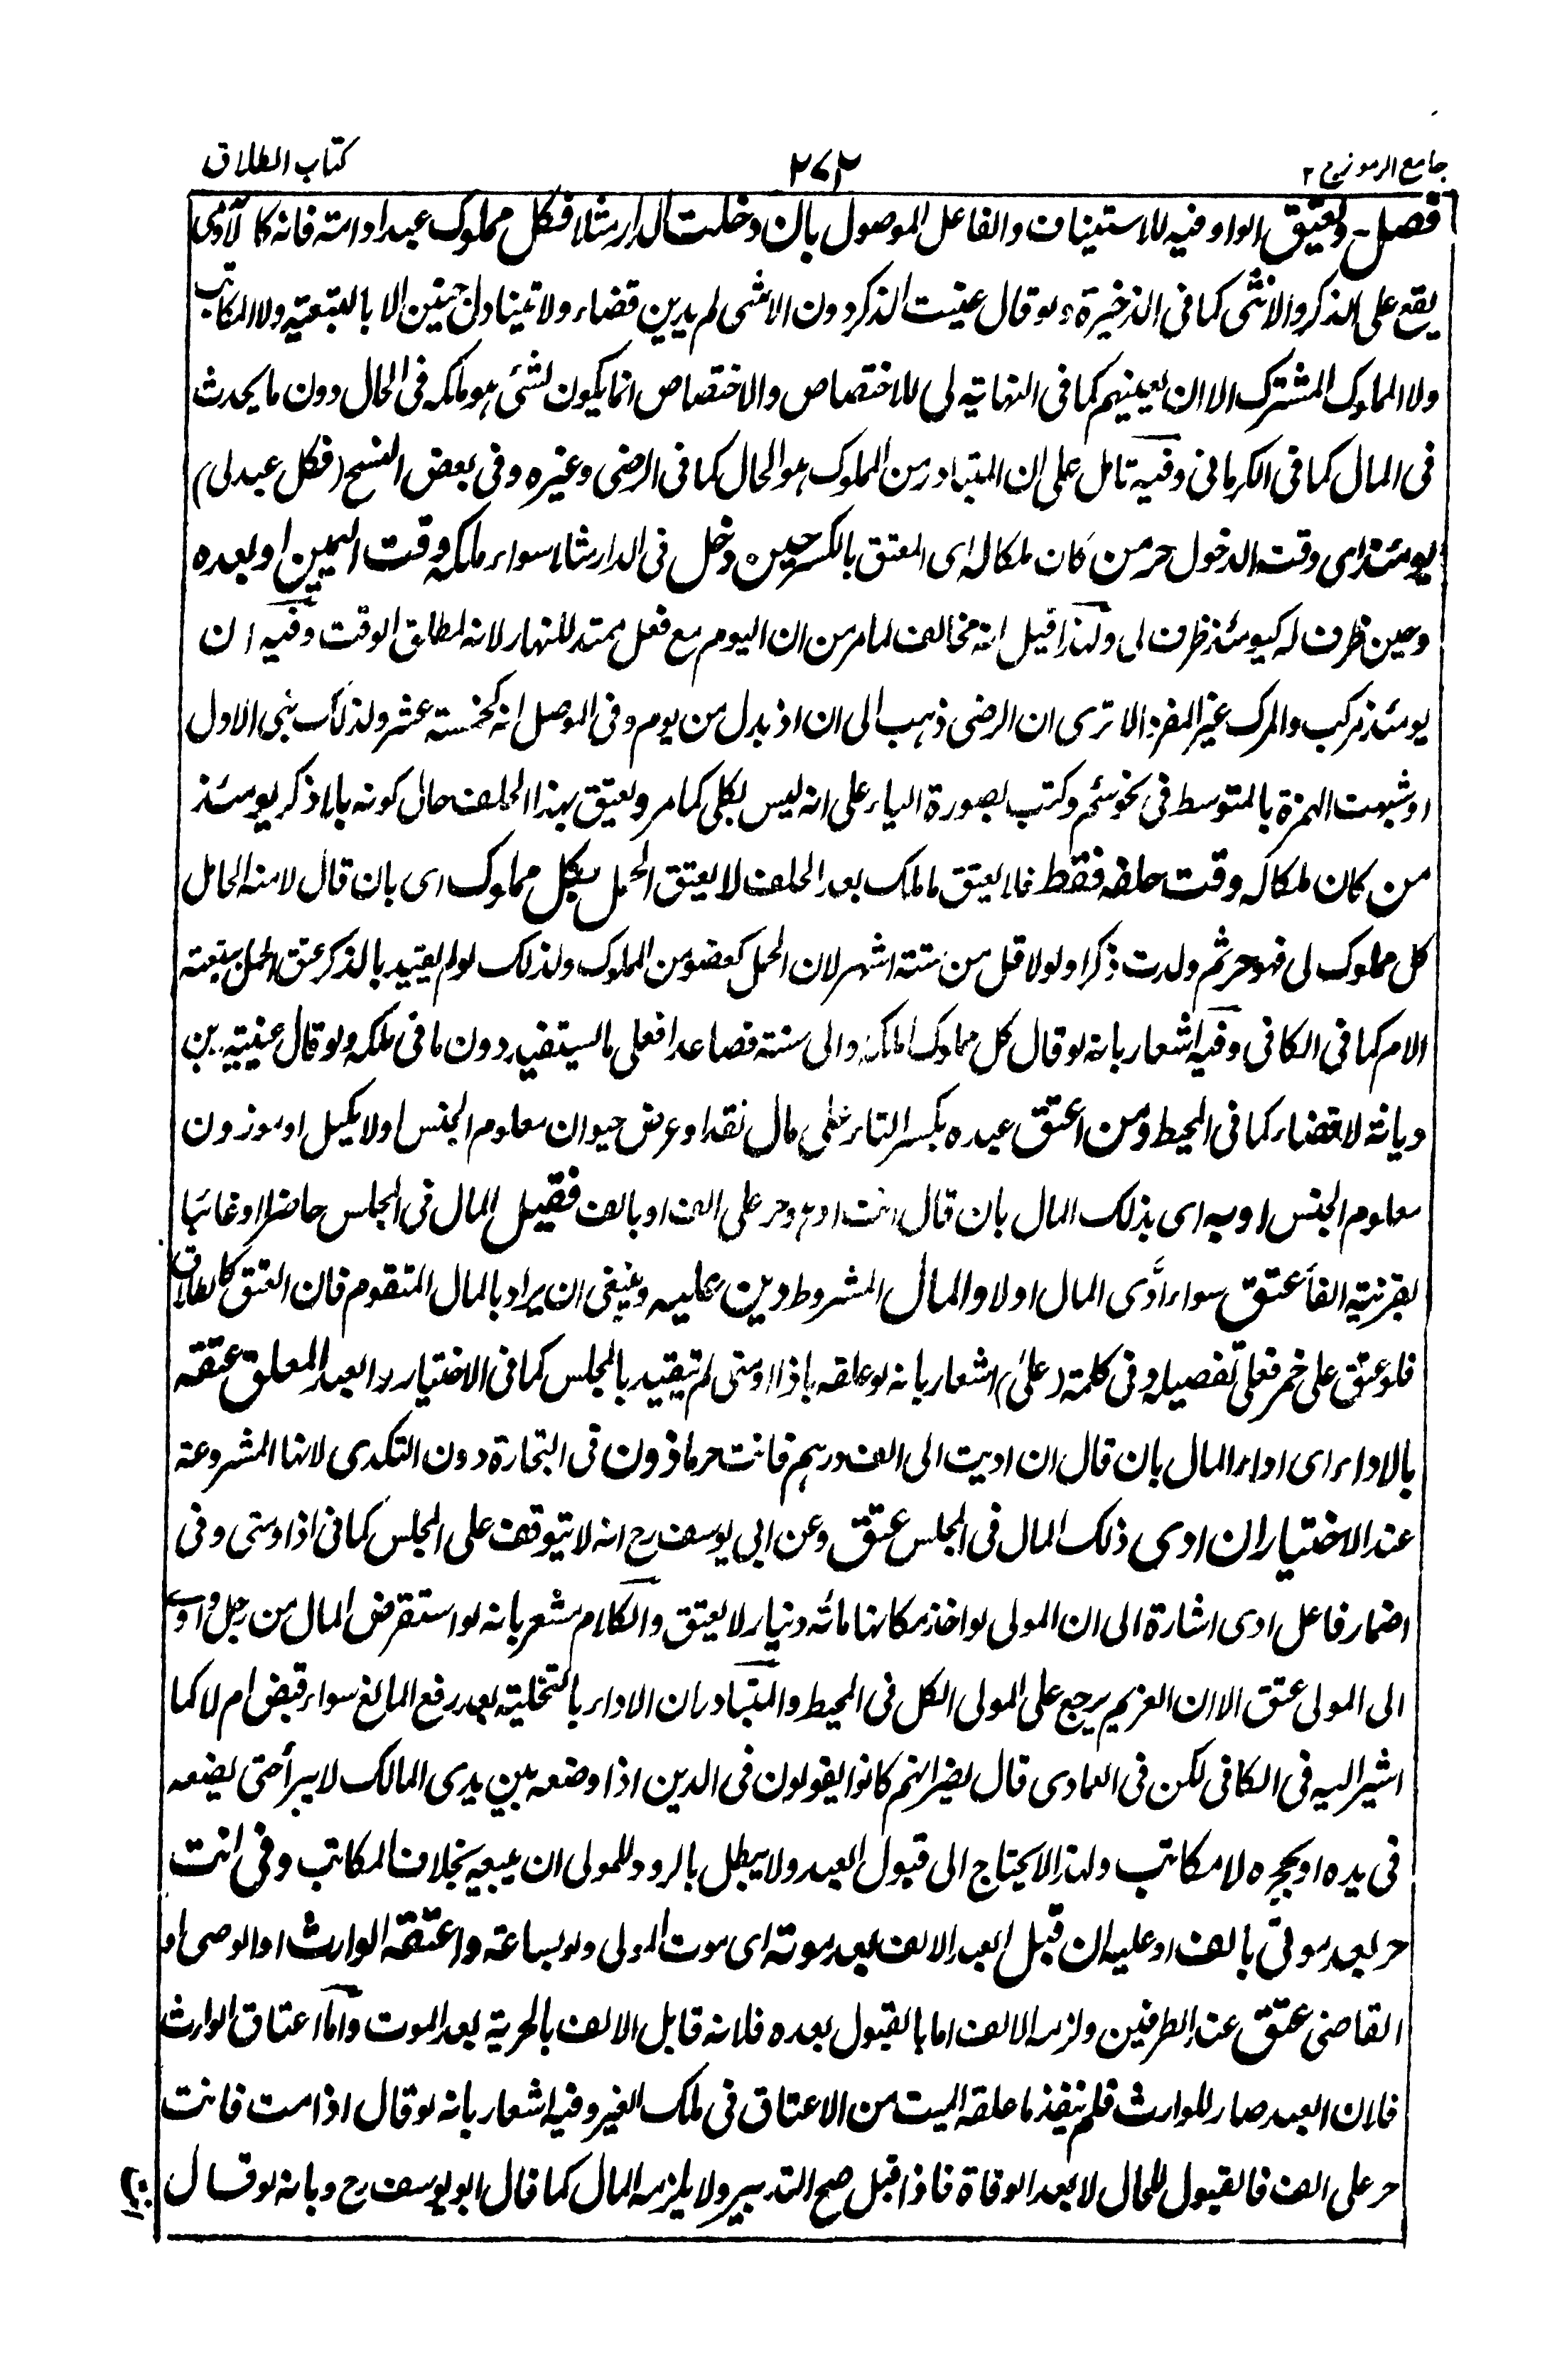 جامع الرموز ج ٢
٢٧٢
كتاب الطلاق
فصل - ويعتق الواو فيه للاستيناف والفاعل الموصول بان دخلت الدار مثلا فكل مملوك عبدا وامته فانه كالآدمى
يقع على الذكر والانثى كما فى الذخيرة ولو قال عنيت الذكر دون الانثى لم يدين قضاء ولا تيناول جنين الا بالتبعية ولا المكاتب
ولا المملوك المشترك الا ان يعينهم كما فى النهاية لى للاختصاص والاختصاص انما يكون لشئ هو ملكه فى الحال دون ما يحدث
فى المال كما فى الكرمانى وفيه تامل على ان المتبادر من المملوك هو الحال كما فى الرضى وغيره وفى بعض النسخ (فكل عبد لى)
يومئذ اى وقت الدخول حر من كان ملكا له اى المعتق بالكسر حين دخل فى الدار مثلا سواء ملكه وقت اليمين او بعده
وحين ظرف له كيومئذ ظرف لى ولهذا قيل انه مخالف لما مر من ان اليوم مع فعل ممتد للنهار لانه لمطلق الوقت وفيه ان
يومئذ مركب والمرك غير المفرد الا ترى ان الرضى ذهب الى ان اذ بدل من يوم وفى الموصل انه كخمسته عشر ولذلك بنى الاول
او شبهت الهمزة بالمتوسط فى نحو سئم وكتب بصورة الياء على انه ليس بكلى كما مر ويعتق بهذا الحلف حال كونه بلا ذكر يومئذ
من كان ملكا له وقت حلفه فقط فلا يعتق ما ملك بعد الحلف لا يعتق الحمل بكل مملوك اى بان قال لامته الحامل
كل مملوك لى فهو حر ثم ولدت ذكرا ولو لاقل من ستة اشهر لان الحمل كعضو من المملوك ولذلك لو لم يقيد بالذكر عتق الحمل بتبعته
الام كما فى الكافى وفيه اشعار بانه لو قال كل مملوك املكه والى سنة فصاعدا فعلى ما يستفيد دون ما فى ملكه ولو قال عنيته يدين
ديانة لا قضاء كما فى المحيط ومن اعتق عبده بكسر التاء على مال نقد او عرض حيوان معلوم الجنس اولا بكيل او موزون
معلوم الجنس او به اى بذلك المال بان قال انت او هو حر على الف او بالف فقبل المال فى المجلس حاضرا او غائبا
بقرنية الفا عتق سواء ادّى المال اولا والمال المشروط دين عليه وينبغى ان يراد بالمال المتقوم فان العتق كالطلاق
فلو عتق على خمر فعلى تفصيله وفى كلمة (على) اشعار بانه لو علقه باذا او متى لم يتقيد بالمجلس كما فى الاختيار والعبد المعلق عتقه
بالاداء اى اداء المال بان قال ان اديت الى الف درهم فانت حر ماذون فى التجارة دون التكدى لانها المشروعة
عند الاختيار ان ادى ذلك المال فى المجلس عتق وعن ابى يوسف رح انه لا يتوقف على المجلس كما فى اذا ومتى وفى
اضمار فاعل ادى اشارة الى ان المولى لو اخذ مكانها مائة دنيار لا يعتق والكلام مشعر بانه لو استقرض المال من رجل وادى
الى المولى عتق الا ان الغريم يرجع على المولى الكل فى المحيط والمتبادر ان الاداء بالتخلية بعد رفع المانع سواء قبض ام لا كما
اشير اليه فى الكافى لكن فى العمادى قال بضرانهم كانوا يقولون فى الدين اذا وضعه بين يدى المالك لا يبرأ حتى يضعه
فى يده او حجره لا مكاتب ولهذا لا يحتاج الى قبول العبد ولا يبطل بالرد وللمولى ان يبيعه بخلاف المكاتب وفى انت
حر بعد موتى بالف او عليه ان قبل العبد الالف بعد موته اى موت المولى ولو بساعة واعتقه الوارث او الوصى او
القاضى عتق عند الطرفين ولزمه الالف اما بالقبول بعده فلانه قابل الالف بالحرية بعد الموت واما اعتاق الوارث
فلان العبد صار للوارث فلم ينفذ ما علقه الميت من الاعتاق فى ملك الغير وفيه اشعار بانه لو قال اذا مت فانت
حر على الف فالقبول للحال لا بعد الوفاة فاذا قبل صح التدبير ولا يلزمه المال كما قال ابو يوسف رح وبانه لو قال